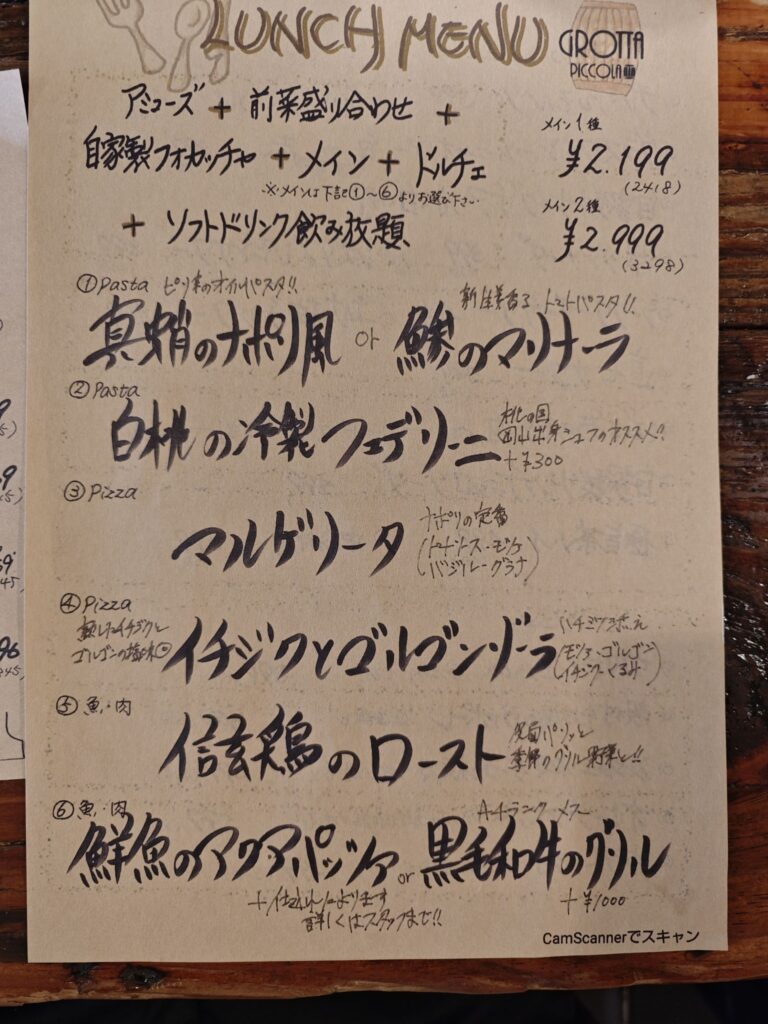 LUNCH MENU
GROTTA
PICCOLA
アミューズ + 前菜盛り合わせ +
自家製フォカッチャ + メイン + ドルチェ
※メインは下記①〜⑥よりお選び下さい
+ ソフトドリンク飲み放題
メイン1種
¥2.199
(2418)
メイン2種
¥2.999
(3298)
①Pasta ピリ辛のオイルパスタ!!
真蛸のナポリ風 or
香る トマトパスタ!!
のマリナーラ
②Pasta
白桃の冷製フェデリーニ
桃の国
岡山出身シェフのオススメ!!
+¥300
③Pizza
マルゲリータ
ナポリの定番
(トマトソース・モッツァ
バジリコ・グラナ)
④Pizza
熟したイチジクと
ゴルゴンの塩味
イチジクとゴルゴンゾーラ
ハチミツ添え
(モッツァ・ゴルゴン
イチジク・くるみ)
⑤魚・肉
信玄鶏のロースト
皮面パリッと
季節のグリル野菜と!!
⑥魚・肉
鮮魚のアクアパッツァ or
+仕込みによります
詳しくはスタッフまで!!
A4ランク メス
黒毛和牛のグリル
+¥1000
CamScannerでスキャン